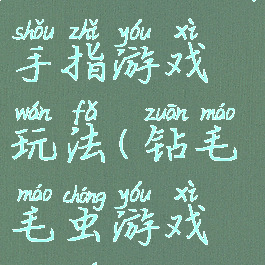 shǒu zhǐ yóu xì
手指游戏
wán fǎ zuān máo
玩法(钻毛
máo chóng yóu xì
毛虫游戏